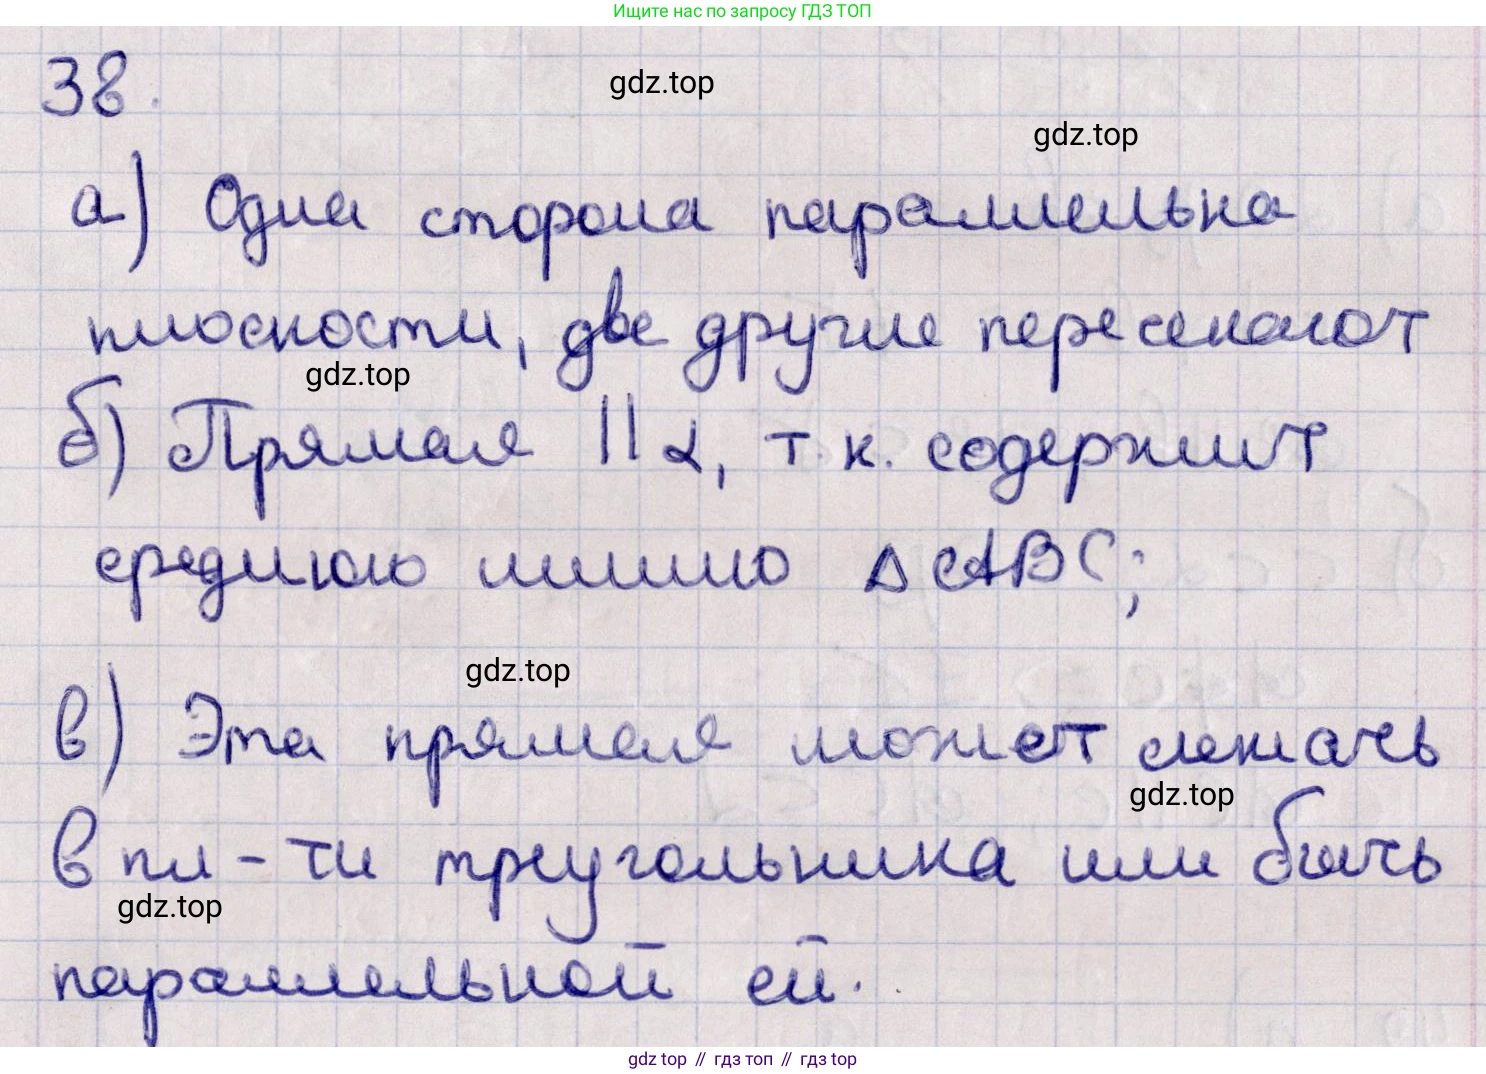 Ищите нас по запросу ГДЗ ТОП
38.
gdz.top
gdz.top
а) Одна сторона параллельна
плоскости, две другие пересекают
gdz.top
б) Прямая || α, т.к. содержит
среднюю линию ΔABC;
gdz.top
в) Эта прямая может лежать
gdz.top
в пл-ти треугольника или быть
gdz.top
параллельной ей.
gdz top // гдз топ // gdz top